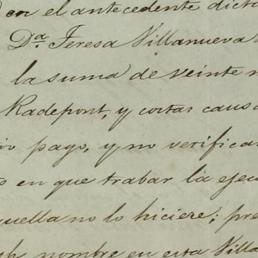 en el antecedente dicta
Da. Teresa Villanueva
la suma de veinte
Radepont, y cortas causa
pago, y no verifica
en que trabar la ejecu
quella no lo hiciere; pre
nombre en esta Villa